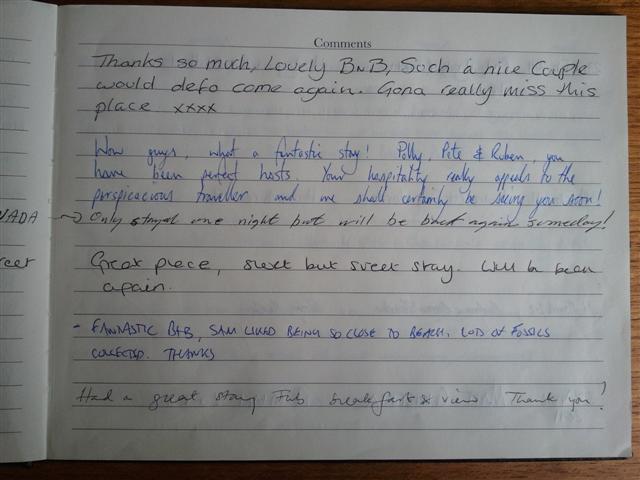 Comments
Thanks so much, Lovely BnB, Such a nice Couple
would defo come again. Gona really miss this
place xxxx
Wow guys, what a fantastic stay! Polly, Pete & Ruben, you
have been perfect hosts. Your hospitality really appeals to the
perspicacious traveller and we shall certainly be seeing you soon!
NADA ~> Only stayed one night but will be back again someday!
reet
Great place, short but sweet stay. Will be back
again.
- FANTASTIC B+B, SAM LIKED BEING SO CLOSE TO BEACH, LOTS OF FOSSILS
COLLECTED. THANKS
Had a great stay Fab breakfast & view Thank you!